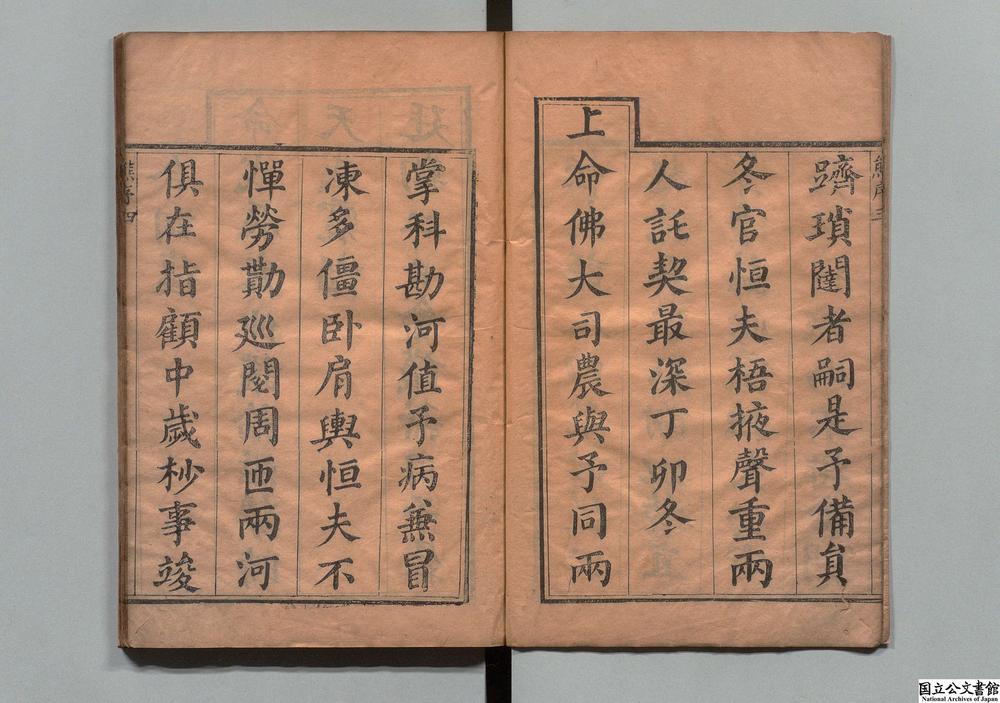 躋瑣闥者嗣是予備員
冬官恒夫梧掖聲重兩
人託契最深丁卯冬
上命佛大司農與予同兩
掌科勘河值予病兼冒
凍多僵卧肩輿恒夫不
憚勞勩廵閱周匝兩河
俱在指顧中歲杪事竣
熊序三
熊序四
国立公文書館
National Archives of Japan